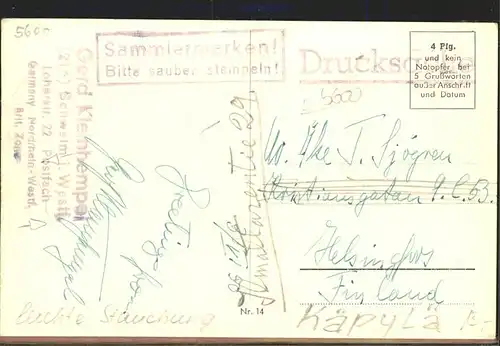 5600
Sammlermarken!
Bitte sauber stempeln!
Drucksache
5600
4 Pfg.
und kein
Notopfer bei
5 Grußworten
außer Anschrift
und Datum
Gerd Kleinhempel
Schwelm i. Westf.
Loherstr. 22 Postfach
Germany Nordrhein-Westf.
Brit. Zone
Åke T. Sjögren
Kristiansgatan 9.C.53.
Helsingfors
Finland
KÄPYLÄ
Greetings from
leichte Stauchung
Nr. 14